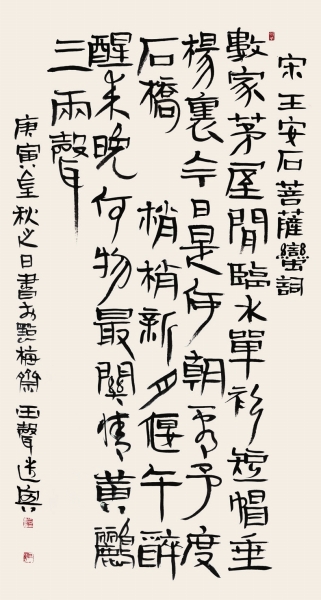 宋王安石菩薩蠻詞
數家茅屋閒臨水單衫短帽垂
楊裏今日是何朝看予度
石橋 梢梢新月偃午醉
醒来晚何物最關情黄鸝
三兩聲
庚寅 秋之日書於 梅齋 王聲